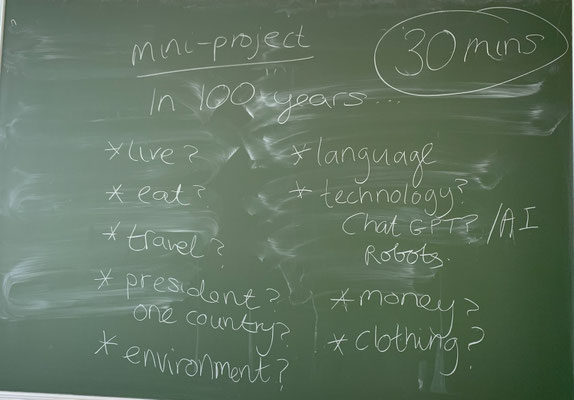 mini-project
30 mins
In 100 years...
*live?
*eat?
*travel?
*president?
one country?
*environment?
*language
*technology?
Chat GPT? /AI
Robots.
*money?
*clothing?